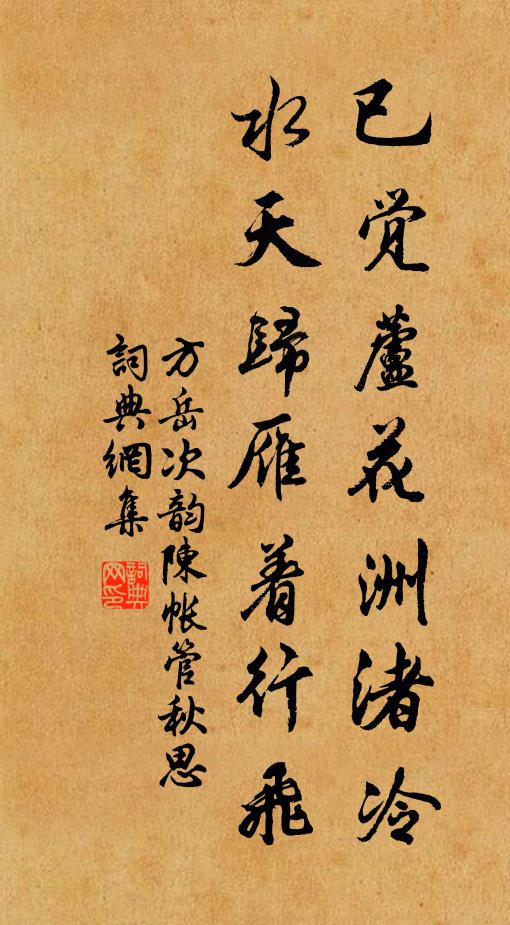 已觉蘆花洲渚冷
水天歸雁着行飛
方岳次韵陳帐管秋思
詞典網集
詞典网印